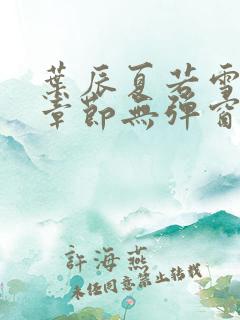 葉辰夏若雪
章節無彈窗
許海燕
未經同意禁止轉載